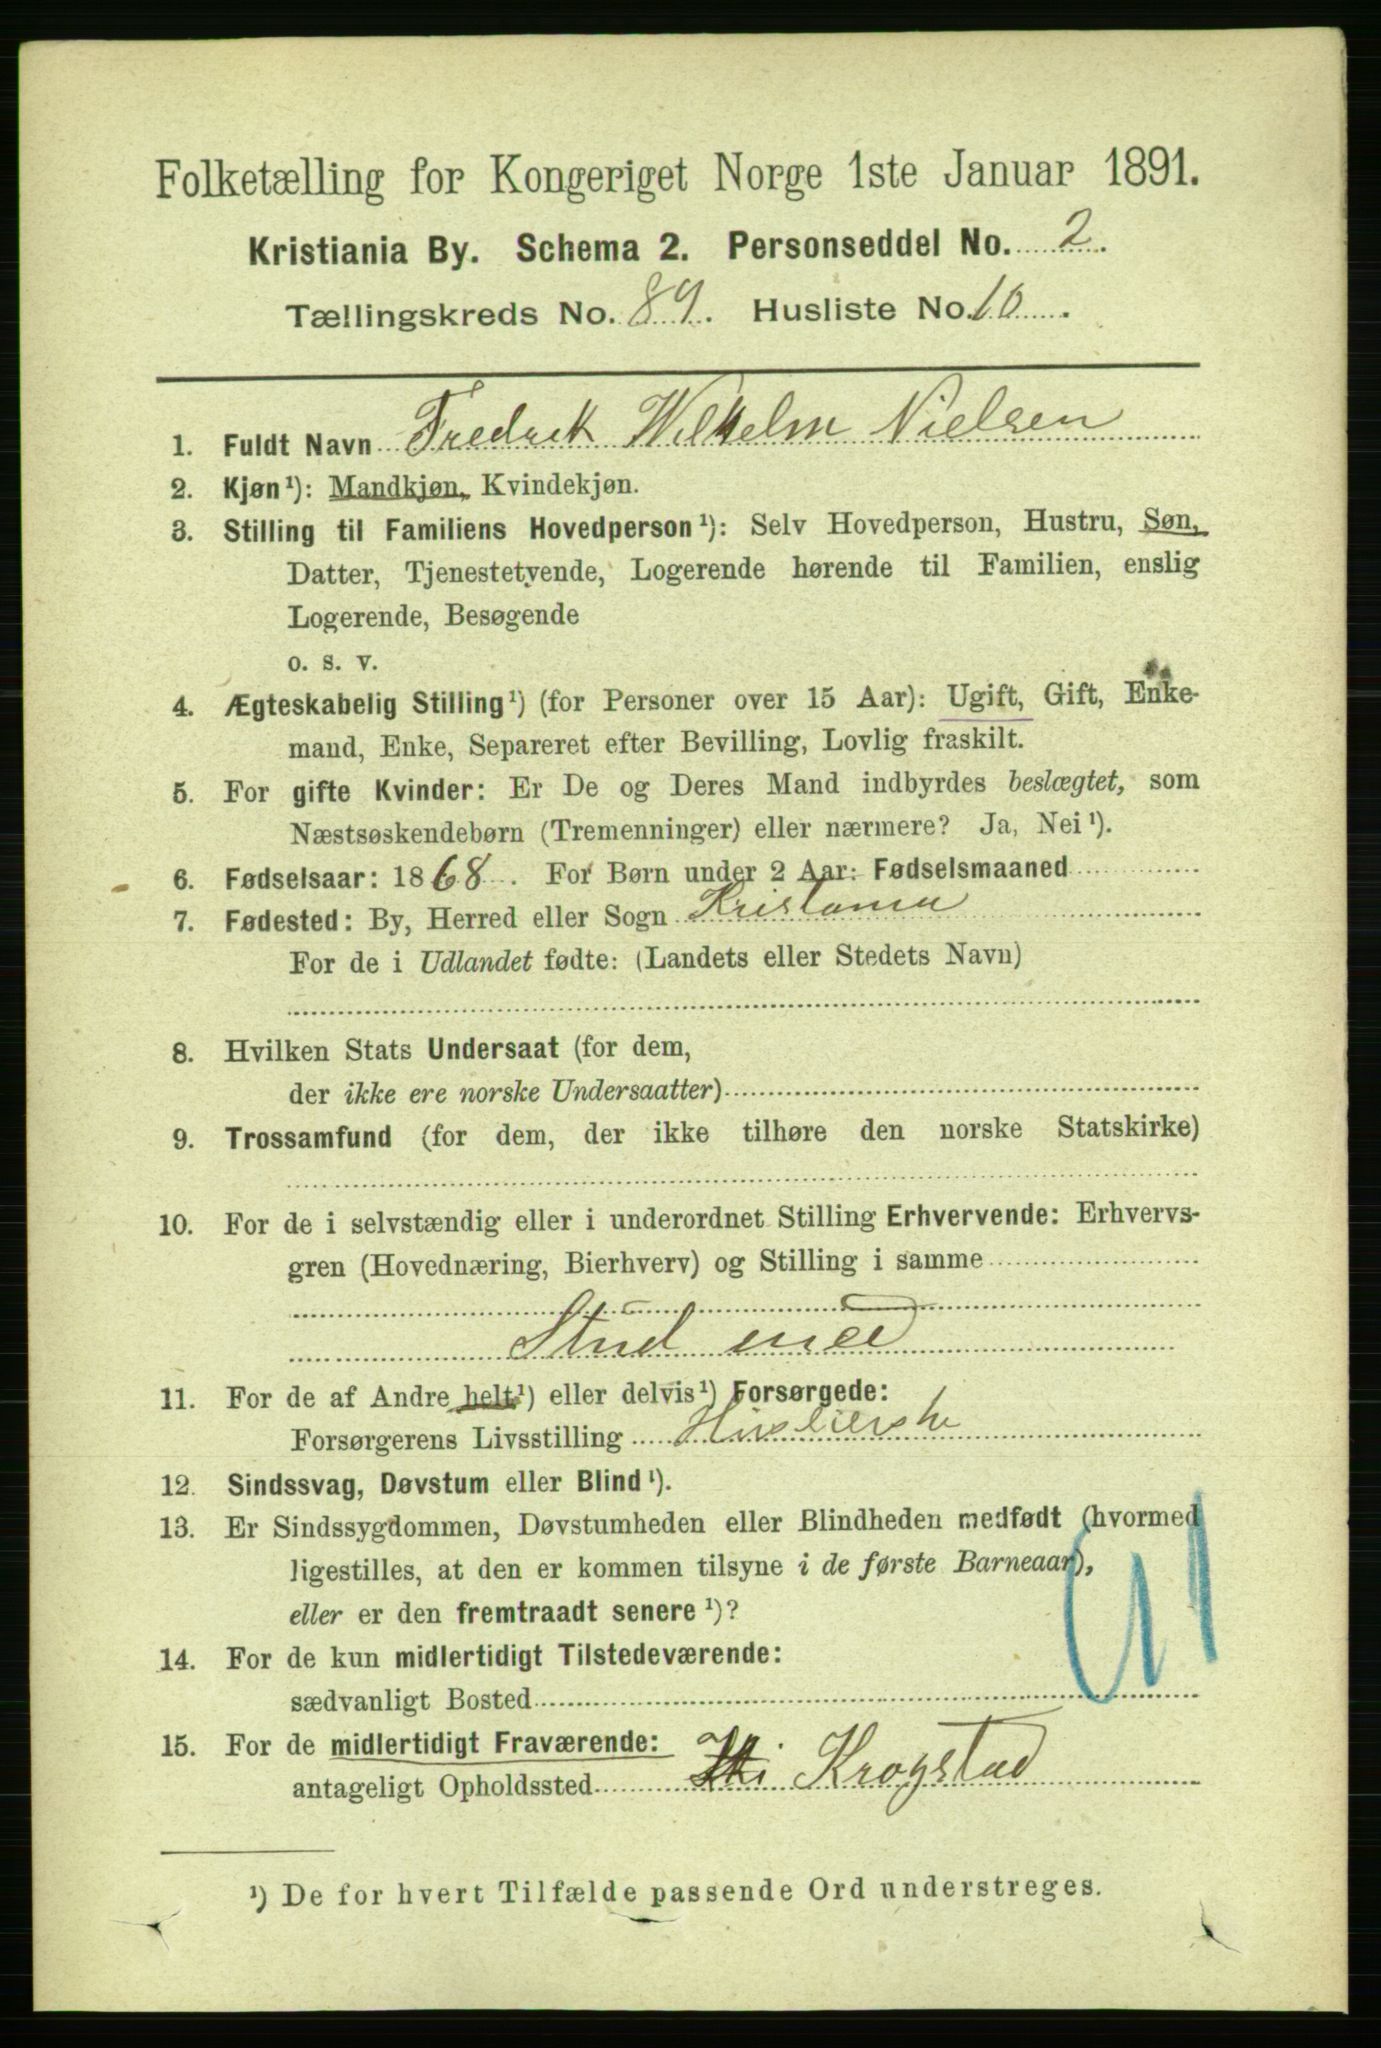 Folketælling for Kongeriget Norge 1ste Januar 1891.
Kristiania By. Schema 2. Personseddel No. 2.
Tællingskreds No. 89. Husliste No. 10.
1. Fuldt Navn Fredrik Wilhelm Nielsen
2. Kjøn¹): Mandkjøn, Kvindekjøn.
3. Stilling til Familiens Hovedperson¹): Selv Hovedperson, Hustru, Søn,
Datter, Tjenestetyende, Logerende hørende til Familien, enslig
Logerende, Besøgende
o. s. v.
4. Ægteskabelig Stilling¹) (for Personer over 15 Aar): Ugift, Gift, Enke-
mand, Enke, Separeret efter Bevilling, Lovlig fraskilt.
5. For gifte Kvinder: Er De og Deres Mand indbyrdes beslægtet, som
Næstsøskendebørn (Tremenninger) eller nærmere? Ja, Nei¹).
6. Fødselsaar: 1868. For Børn under 2 Aar: Fødselsmaaned
7. Fødested: By, Herred eller Sogn Kristiania
For de i Udlandet fødte: (Landets eller Stedets Navn)
8. Hvilken Stats Undersaat (for dem,
der ikke ere norske Undersaatter)
9. Trossamfund (for dem, der ikke tilhøre den norske Statskirke)
10. For de i selvstændig eller i underordnet Stilling Erhvervende: Erhvervs-
gren (Hovednæring, Bierhverv) og Stilling i samme
Stud med
11. For de af Andre helt¹) eller delvis¹) Forsørgede:
Forsørgerens Livsstilling
12. Sindssvag, Døvstum eller Blind¹).
13. Er Sindssygdommen, Døvstumheden eller Blindheden medfødt (hvormed
ligestilles, at den er kommen tilsyne i de første Barneaar),
eller er den fremtraadt senere¹)?
14. For de kun midlertidigt Tilstedeværende:
sædvanligt Bosted
15. For de midlertidigt Fraværende:
antageligt Opholdssted Krogstad
¹) De for hvert Tilfælde passende Ord understreges.